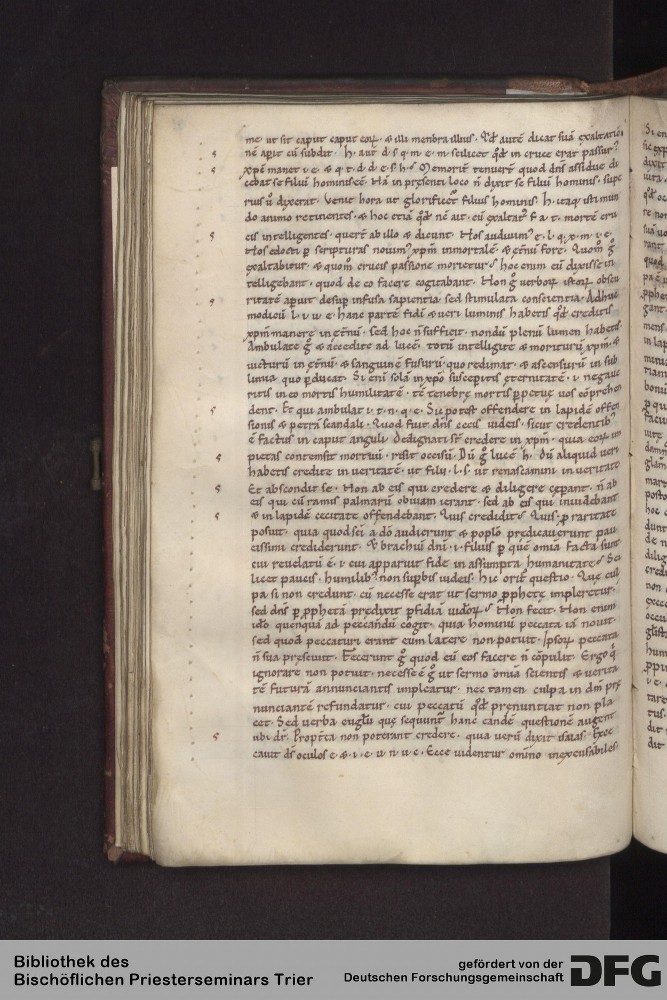 me. ut sit caput caput eorum. & illi menbra illius. Qd autē dicat suā exaltationē
nē apiť cū subdit. h. aut d. s. q. m. e. m. scilicet qđ in cruce erat passur9
xpm̄ manet i. e. & q. t. d. d. e. f. h. Memorit̄ tenuer̄ quod dn̄s assidue di
cebat se filiū hominis eē. Nā in p̄senti loco n̄ dixit se filiū hominis. supe
rius ū dixerat. Venit hora ut glorificet filius hominis. h. itaq; isti mun
do animo retinentes. & hoc etiā qđ nē ait. cū exaltat9 f. a. t. mortē cru
cis intelligentes. quer̄t ab illo & dicunt. Nos audiuim9 e. l. q. x. m. i. e.
Nos edocti p scripturas nouim9 xpm̄ inmortalē. & et̄nū fore. Quom g̊
exaltabitur. & quom crucis passione morietur. hoc enim eū dixisse in
telligebant. quod de eo facere cogitabant. Non g̊ uerboꝝ istoꝝ obscu
ritatē aperuit desup infusa sapientia. sed stimulata conscientia. Adhuc
modicū l. i. u. e. hanc partē fidei & ueri luminis habetis qđ creditis
xpm̄ manere in et̄nū. sed hoc n̄ sufficit. nondū plenū lumen habetis.
Ambulate g̊ & accedite ad lucē. totū intelligite & moriturū xpm̄. &
uicturū in et̄nū. & sanguinē fusurū quo redimat. & ascensurū in sub
limia quo pducat. Si eni solā in xp̄o susceptis et̄nitatē. & negaue
ritis in eo mortis humilitatē. tē tenebrę mortis ppetuę uos cōprehen
dent. Et qui ambulat i. t. n. q. e. Sic potest offendere in lapidē offen
sionis & petrā scandali. Quod fuit dn̄s cecis iudeis. sicut credentib;
ē factus in caput anguli. Dedignati st̄ credere in xpm̄. quia eoꝝ im
pietas contemsit mortuū. risit occisū. Dū g̊ lucē h. Dū aliquid ueri
habetis credite in ueritatē. ut filii. l. s. ut renascamini in ueritate
Et abscondit se. Non ab eis qui credere & diligere cępant. n̄ ab
eis qui cū ramis palmarū obuiam ierant. sed ab eis qui inuidebant
& in lapidē cecitate offendebant. Quis credidit. Quis. p raritate
posuit. quia quod sc̄i a dō audierunt & poplō predicauerunt pau
cissimi crediderunt. & brachiū dn̄i. i. filius p quē omia facta sunt
cui reuelatū ē. i. cui apparuit fide in assumpta humanitate. Sci
licet paucis. humilib; non supbis iudeis. hic orit̄ questio. Quę cul
pa si non credunt. cū necesse erat ut sermo pphetę impleretur.
sed dn̄s p pphetā predixit pfidiā iudeoꝝ. Non fecit. Non enim
ido quenquā ad peccandū cogit. quia hominū peccata iā nouit.
sed quod peccaturi erant eum latere non potuit. Ipsoꝝ peccata
n̄ sua presciuit. Fecerunt g̊ quod eū eos facere n̄ cōpulit. Ergo q̄
ignorare non potuit. necesse ē g̊ ut sermo omia scientis & uerita
tē futurā annunciantis impleatur. nec tamen culpa in dm̄ pre
nunciantē refundatur. cui peccatū qđ prenuntiat non pla
cet. Sed uerba euglii que sequunt̄ hanc eandē questionē augent
ubi dr̄. Propt̄ea non poterant credere. quia uerū dixit isaias. Exce
cauit ds̄ oculos e. & i. e. u. n. u. e. Ecce uidentur omino inexcusabiles
Bibliothek des
Bischöflichen Priesterseminars Trier
gefördert von der
Deutschen Forschungsgemeinschaft
DFG